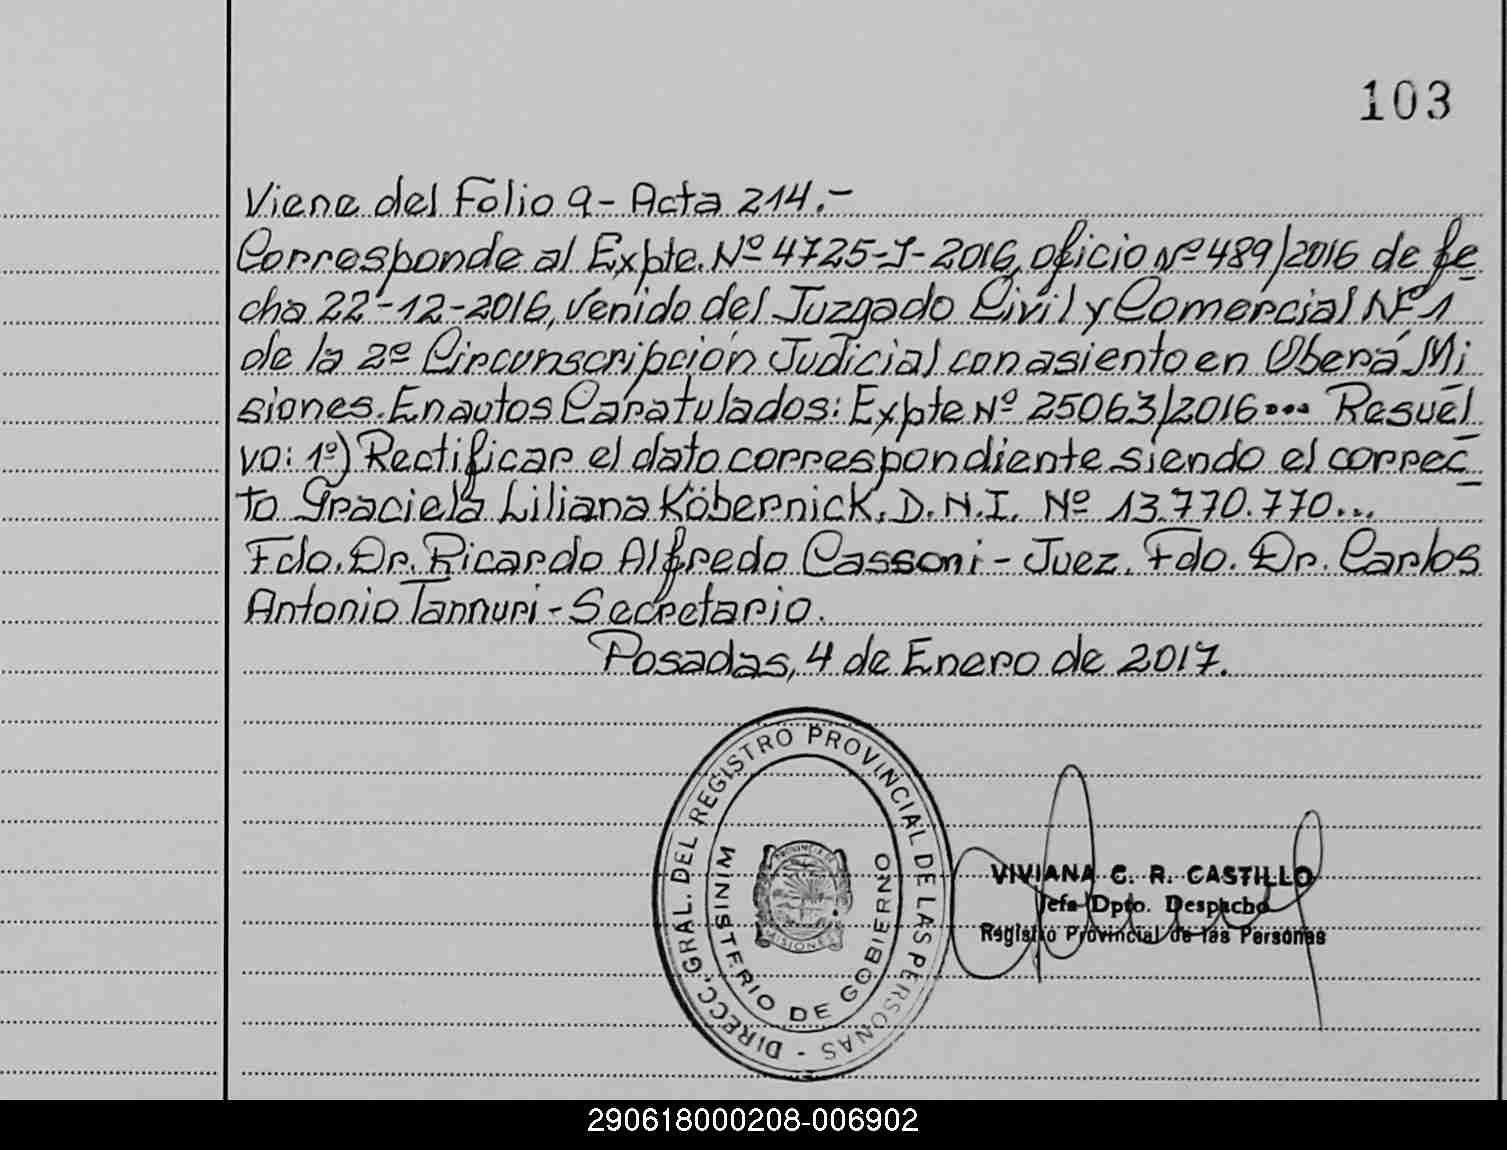 103
Viene del Folio 9- Acta 214.-
Corresponde al Expte. Nº 4725-J-2016, oficio Nº 489/2016 de fe
cha 22-12-2016, venido del Juzgado Civil y Comercial Nº 1
de la 2º Circunscripción Judicial con asiento en Oberá Mi
siones. En autos Caratulados: Expte Nº 25063/2016... Resuel
vo: 1º) Rectificar el dato correspondiente siendo el correc
to Graciela Liliana Köbernick. D.N.I. Nº 13.770.770...
Fdo. Dr. Ricardo Alfredo Cassoni - Juez. Fdo. Dr. Carlos
Antonio Tannuri - Secretario.
Posadas, 4 de Enero de 2017.
DIRECC. GRAL. DEL REGISTRO PROVINCIAL DE LAS PERSONAS -
MINISTERIO DE GOBIERNO
PROVINCIA DE
MISIONES
VIVIANA C. R. CASTILLO
Jefa Dpto. Despacho
Registro Provincial de las Personas
290618000208-006902